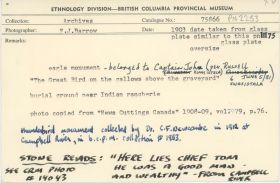 ETHNOLOGY DIVISION—BRITISH COLUMBIA PROVINCIAL MUSEUM
Collection: Archives Catalogue No.: 75866 PN 2253
Photographer: T.J. Barrow 1903 date taken from glass
Remarks: plate similar to this 75
glass plate
oversize
early monument - belonged to Captain John (per. Russell
"The Great Bird on the gallows above the graveyard" JUNE 5/81
burial ground near Indian rancherie
photo copied from "Rems Cuttings Canada" 1908-09, vol 7979, p.76.
thunderbird monument collected by Dr. C.F. Newcombe in 1912 at
Campbell River, in B.C.P.M. collection #
STONE READS: "HERE LIES CHIEF TOM
SEE CRM PHOTO HE WAS A GOOD MAN
# 19043 AND WEALTHY" - FROM CAMPBELL
RIVER